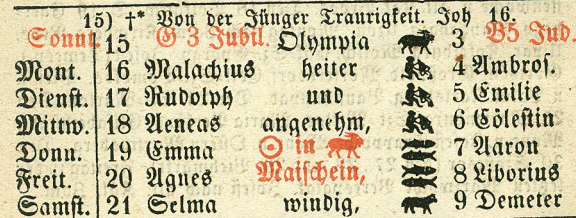 15) †* Von der Jünger Traurigkeit. Joh 16.
Sonnt. 15 G 3 Jubil. Olympia 3 B5 Jud.
Mont. 16 Malachius heiter 4 Ambros.
Dienst. 17 Rudolph und 5 Emilie
Mittw. 18 Aeneas angenehm, 6 Cölestin
Donn. 19 Emma ☉ in 7 Aaron
Freit. 20 Agnes Maischein, 8 Liborius
Samst. 21 Selma windig, 9 Demeter